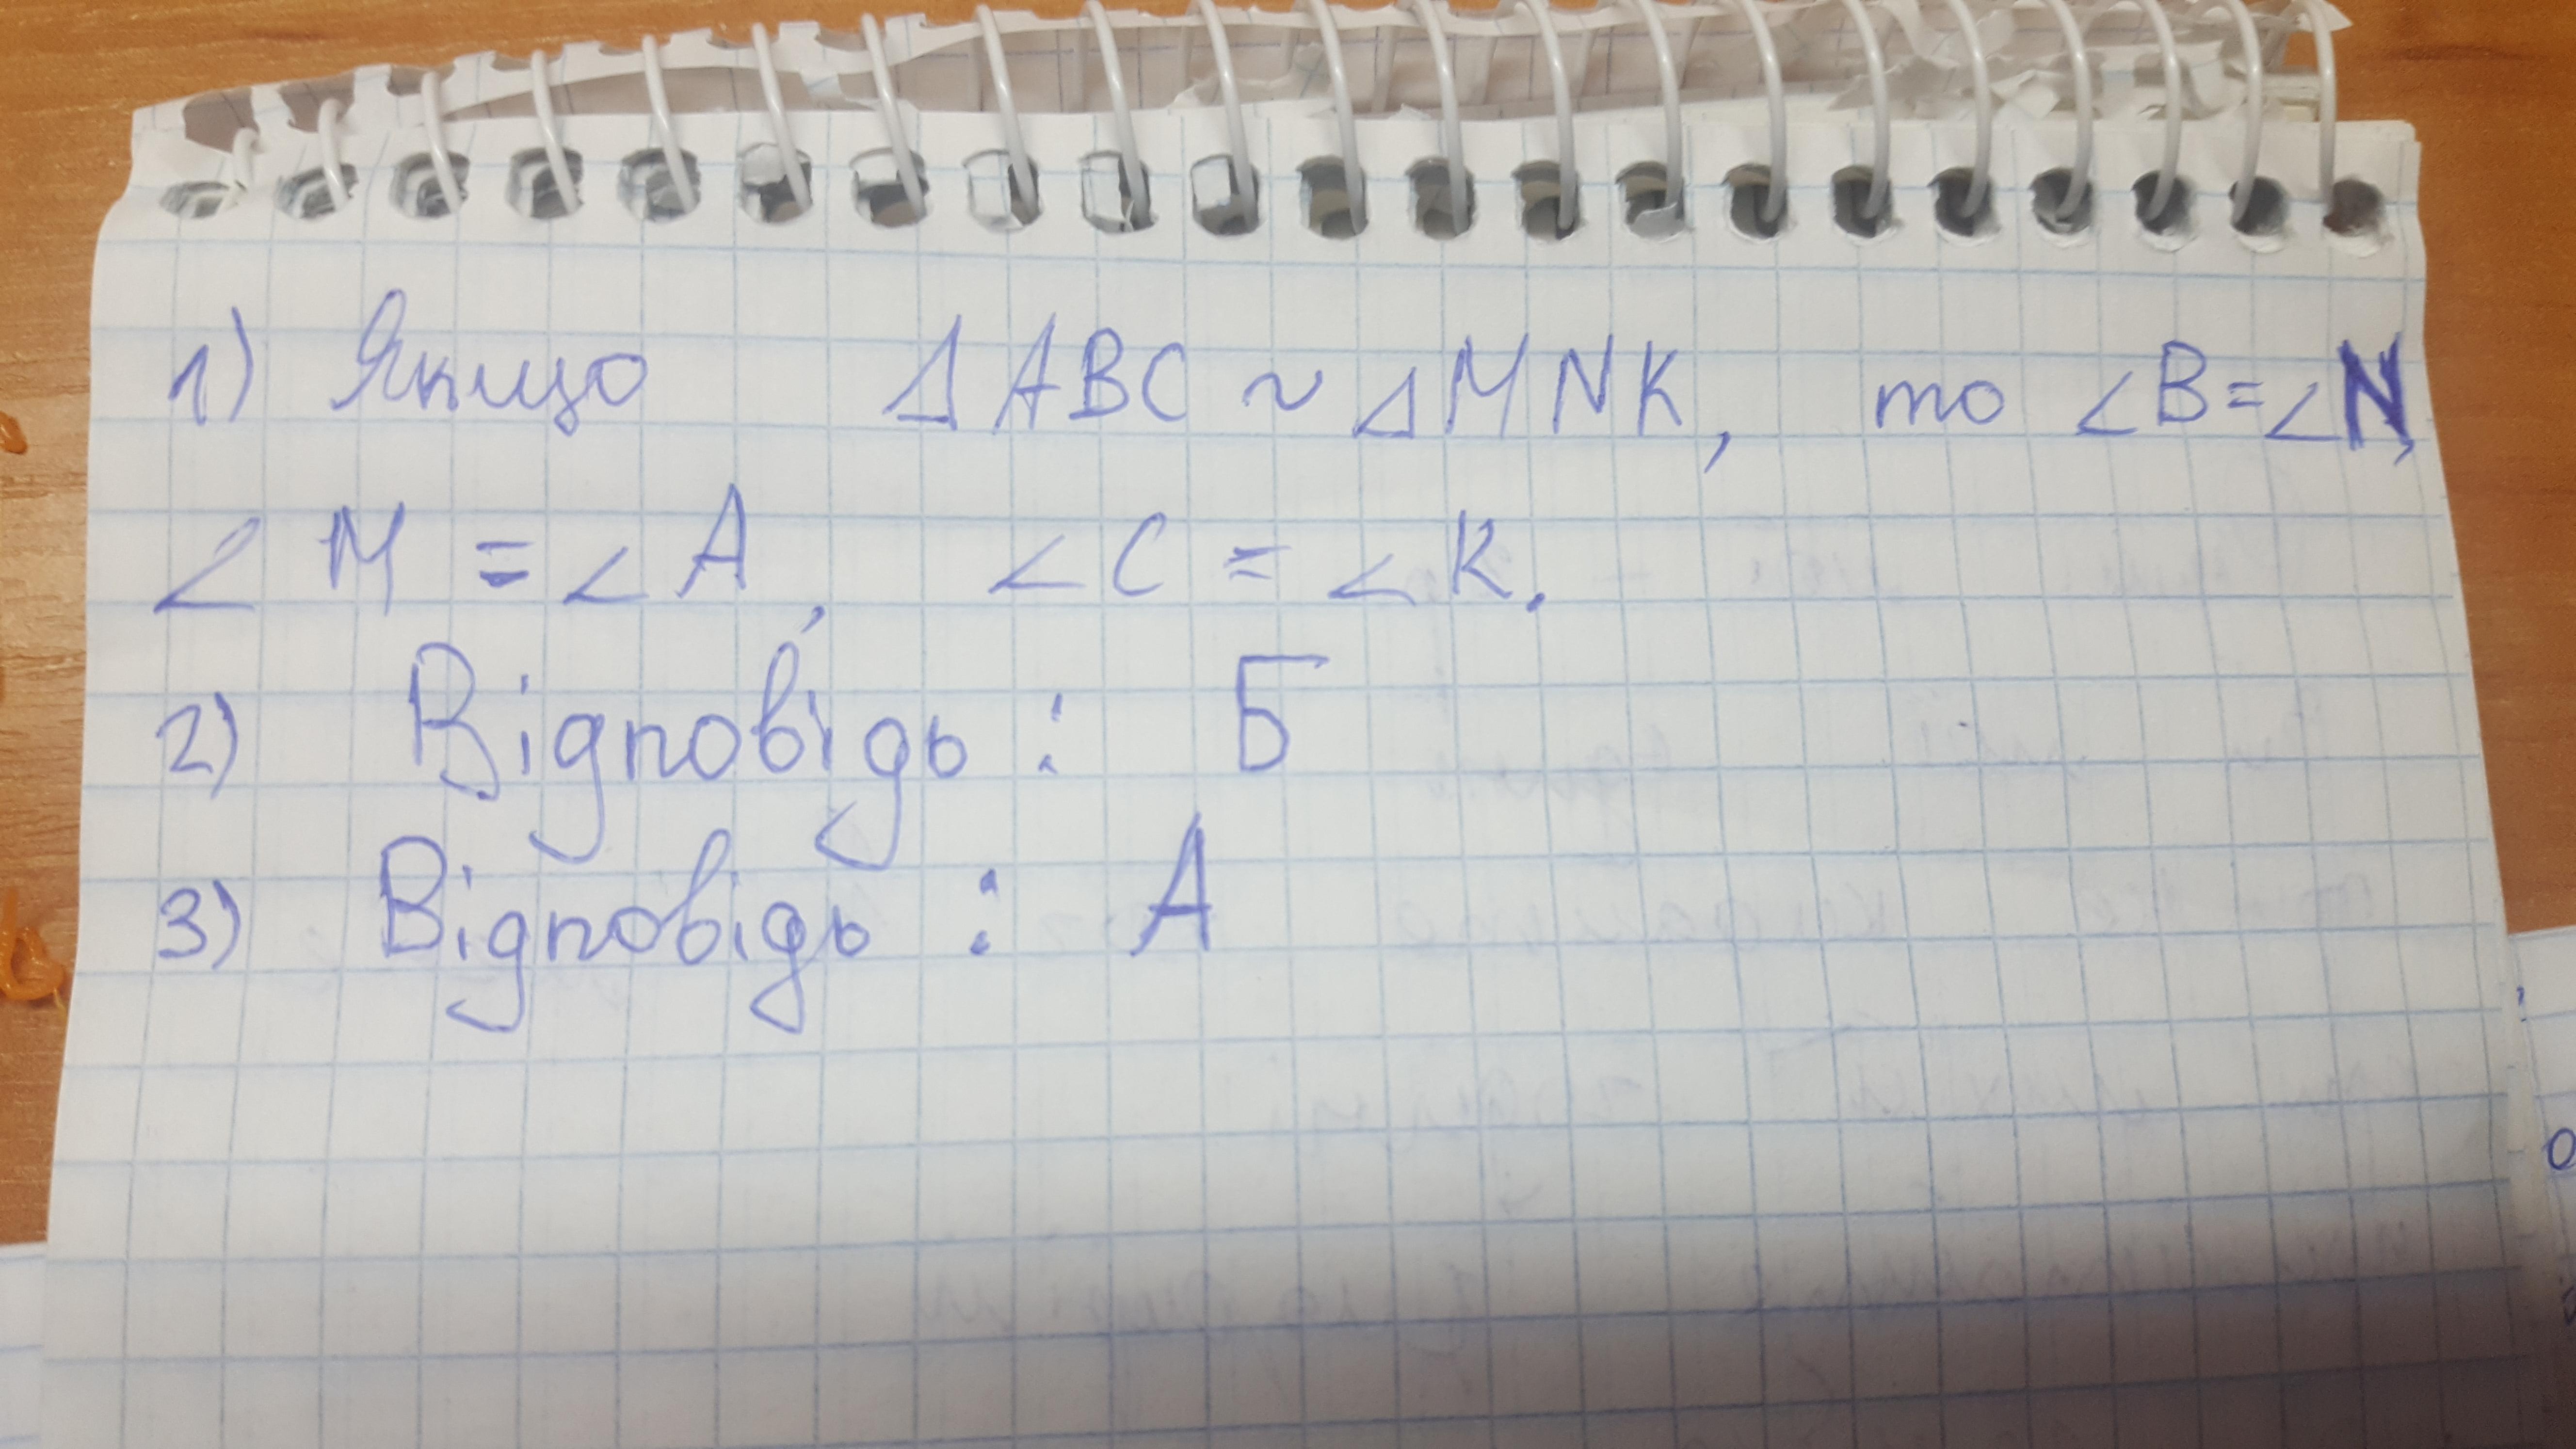 1) Якщо ΔABC ~ ΔMNK, то ∠B=∠N,
∠M = ∠A, ∠C = ∠K.
2) Відповідь : Б
3) Відповідь : А